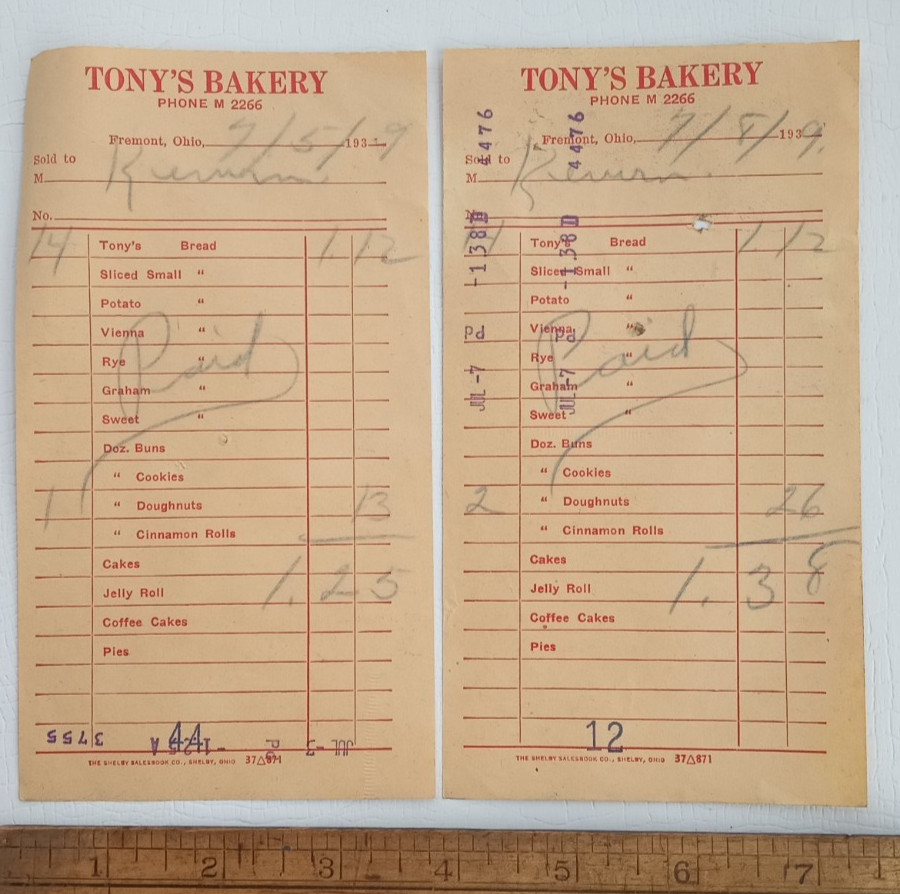 TONY'S BAKERY
PHONE M 2266
Fremont, Ohio, 7/5/ 193 9
Sold to
M
No.
14 Tony's Bread 1.12
Sliced Small "
Potato "
Vienna "
Rye "
Graham "
Sweet "
Paid
Doz. Buns
" Cookies
1 " Doughnuts 13
" Cinnamon Rolls
Cakes 1.25
Jelly Roll
Coffee Cakes
Pies
3755 44 -125A Pd JUL-3
THE SHELBY SALESBOOK CO., SHELBY, OHIO 37△871
TONY'S BAKERY
PHONE M 2266
Fremont, Ohio, 7/8/ 193 9
Sold to
M
14 Tony's Bread 1.12
Sliced Small "
Potato "
Vienna "
Rye "
Graham "
Sweet "
Paid
Doz. Buns
" Cookies
2 " Doughnuts 26
" Cinnamon Rolls
Cakes 1.38
Jelly Roll
Coffee Cakes
Pies
JUL-7 Pd -138D 4476
JUL-7 Pd -138D 4476
12
THE SHELBY SALESBOOK CO., SHELBY, OHIO 37△871
1 2 3 4 5 6 7